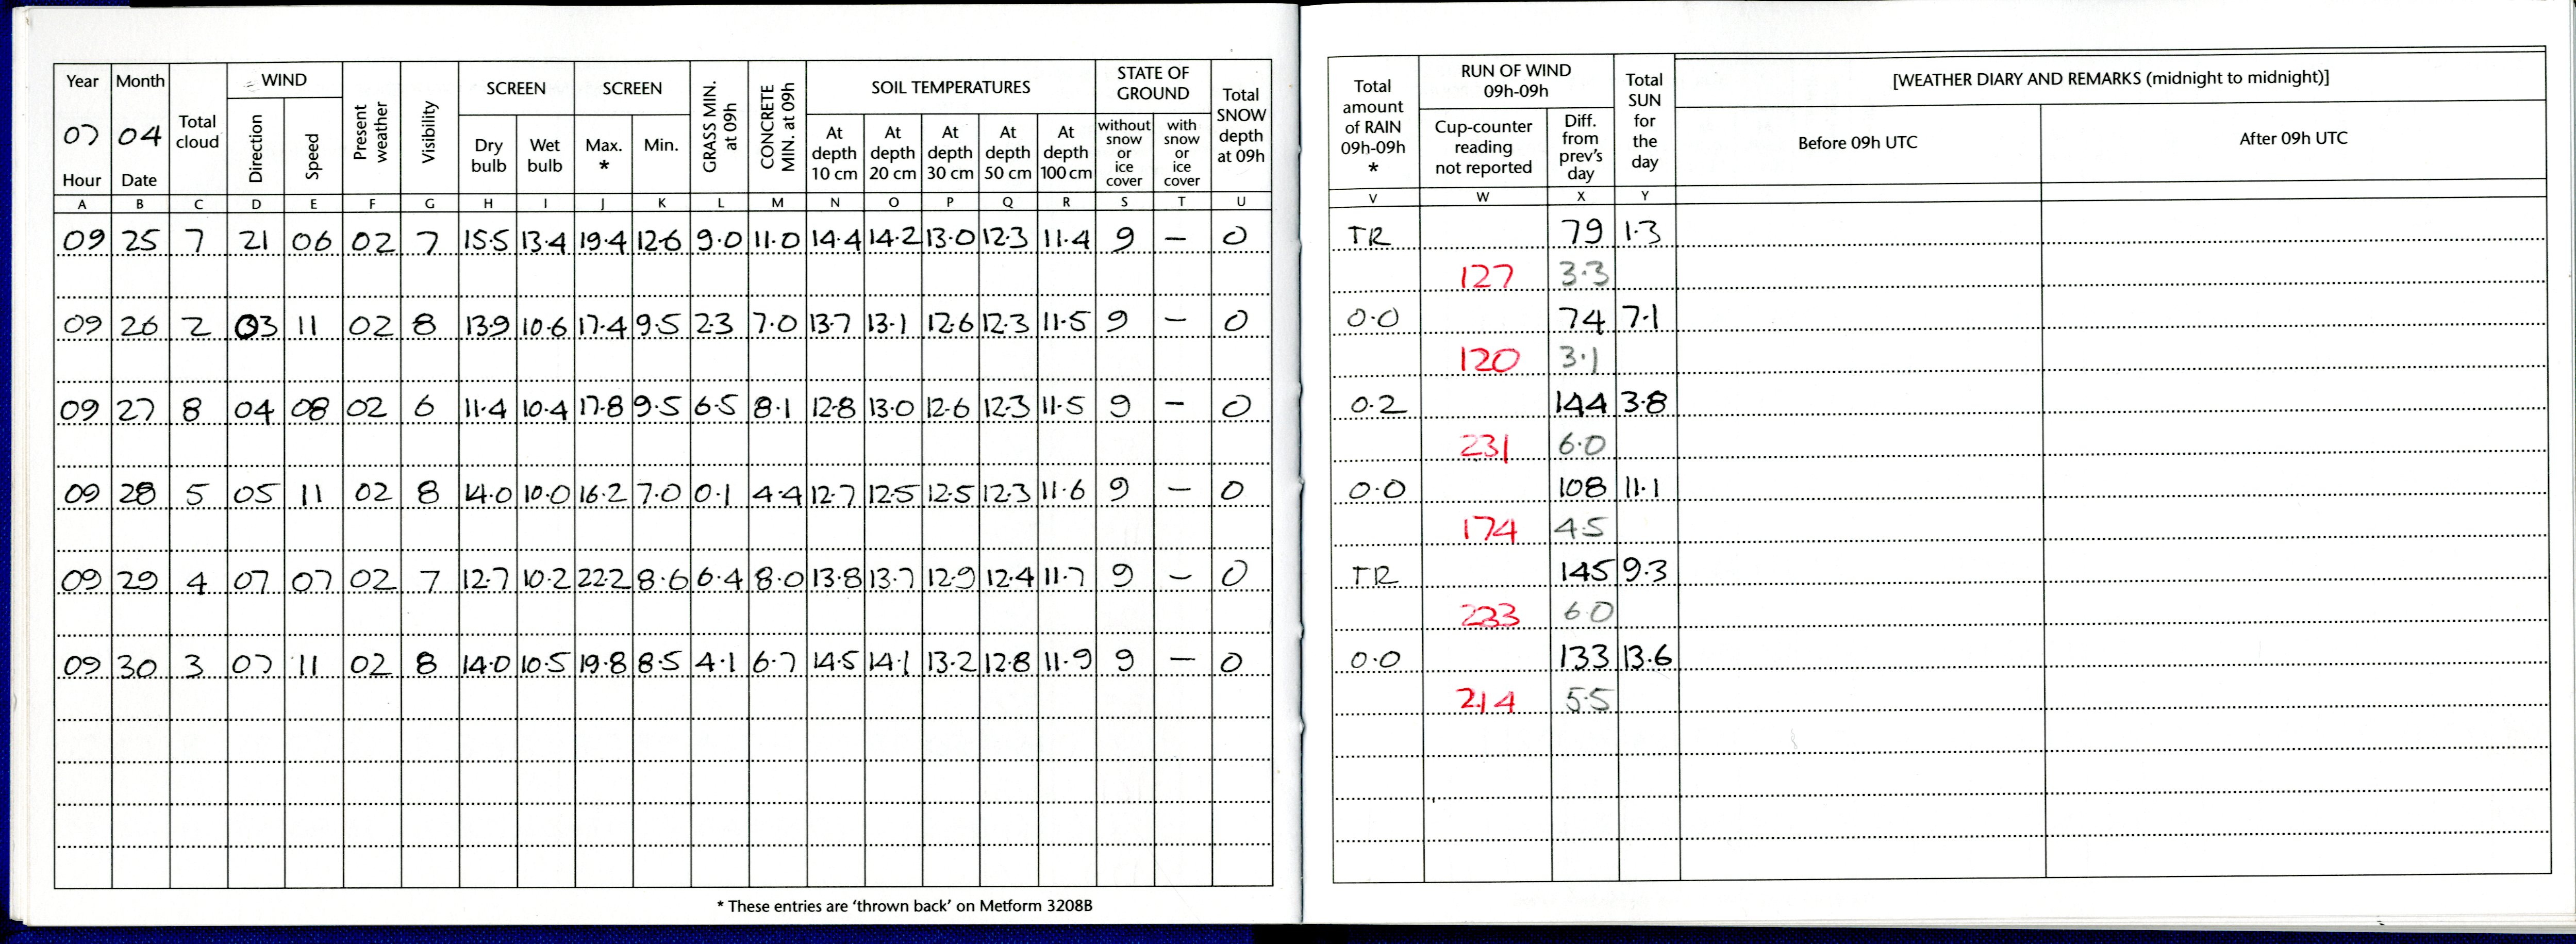 Year Month Total cloud WIND Present weather Visibility SCREEN SCREEN GRASS MIN. at 09h CONCRETE MIN. at 09h SOIL TEMPERATURES STATE OF GROUND Total SNOW depth at 09h
07 04 Direction Speed Dry bulb Wet bulb Max. * Min. At depth 10 cm At depth 20 cm At depth 30 cm At depth 50 cm At depth 100 cm without snow or ice cover with snow or ice cover
Hour Date
A B C D E F G H I J K L M N O P Q R S T U
09 25 7 21 06 02 7 15.5 13.4 19.4 12.6 9.0 11.0 14.4 14.2 13.0 12.3 11.4 9 – 0
09 26 2 03 11 02 8 13.9 10.6 17.4 9.5 2.3 7.0 13.7 13.1 12.6 12.3 11.5 9 – 0
09 27 8 04 08 02 6 11.4 10.4 17.8 9.5 6.5 8.1 12.8 13.0 12.6 12.3 11.5 9 – 0
09 28 5 05 11 02 8 14.0 10.0 16.2 7.0 0.1 4.4 12.7 12.5 12.5 12.3 11.6 9 – 0
09 29 4 07 07 02 7 12.7 10.2 22.2 8.6 6.4 8.0 13.8 13.7 12.9 12.4 11.7 9 – 0
09 30 3 07 11 02 8 14.0 10.5 19.8 8.5 4.1 6.7 14.5 14.1 13.2 12.8 11.9 9 – 0
* These entries are 'thrown back' on Metform 3208B
Total amount of RAIN 09h-09h * RUN OF WIND 09h-09h Total SUN for the day [WEATHER DIARY AND REMARKS (midnight to midnight)]
Cup-counter reading not reported Diff. from prev's day Before 09h UTC After 09h UTC
V W X Y
TR 79 1.3
127 3.3
0.0 74 7.1
120 3.1
0.2 144 3.8
231 6.0
0.0 108 11.1
174 4.5
TR 145 9.3
233 6.0
0.0 133 13.6
214 5.5